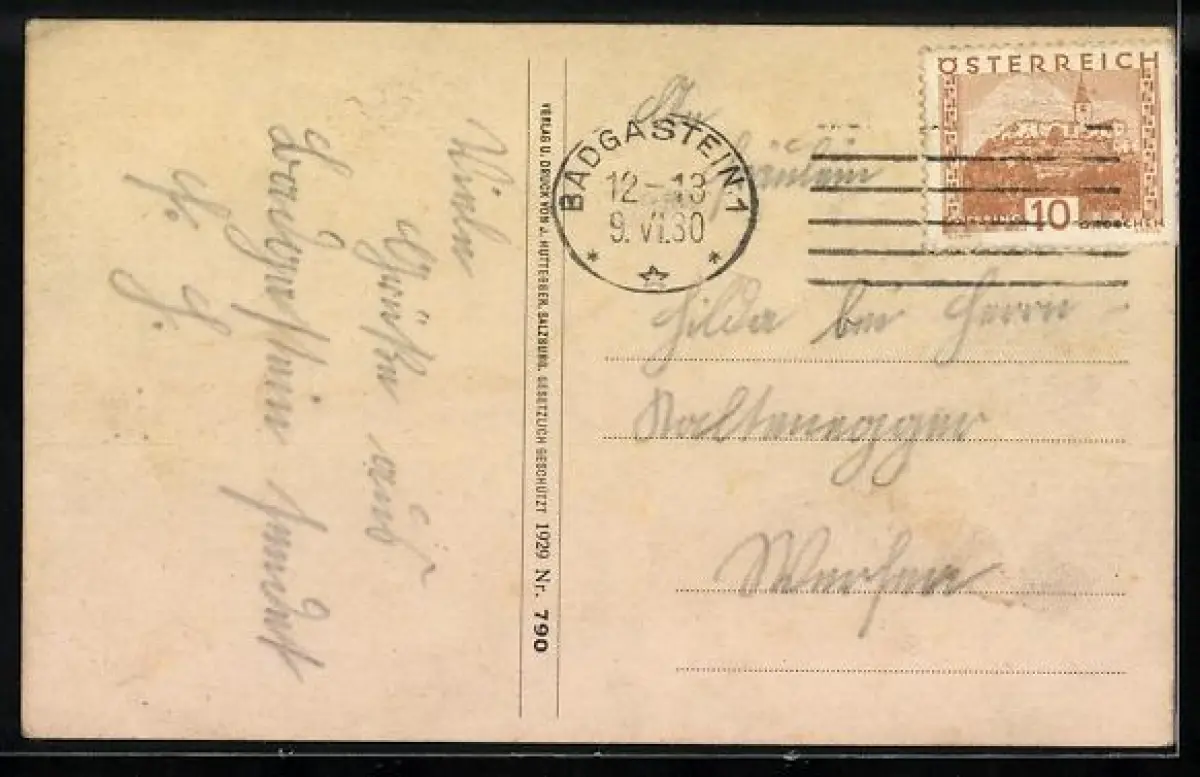 Viele
Grüße aus
Badgastein sendet
H. H.
VERLAG U. DRUCK VON J. HUTTEGGER, SALZBURG. GESETZLICH GESCHÜTZT 1929 Nr. 790
BADGASTEIN 1
12-13
9. VI. 30
ÖSTERREICH
GÜSSING 10 GROSCHEN
An
Fräulein
Hilda bei Herrn
Kaltenegger
Werfen